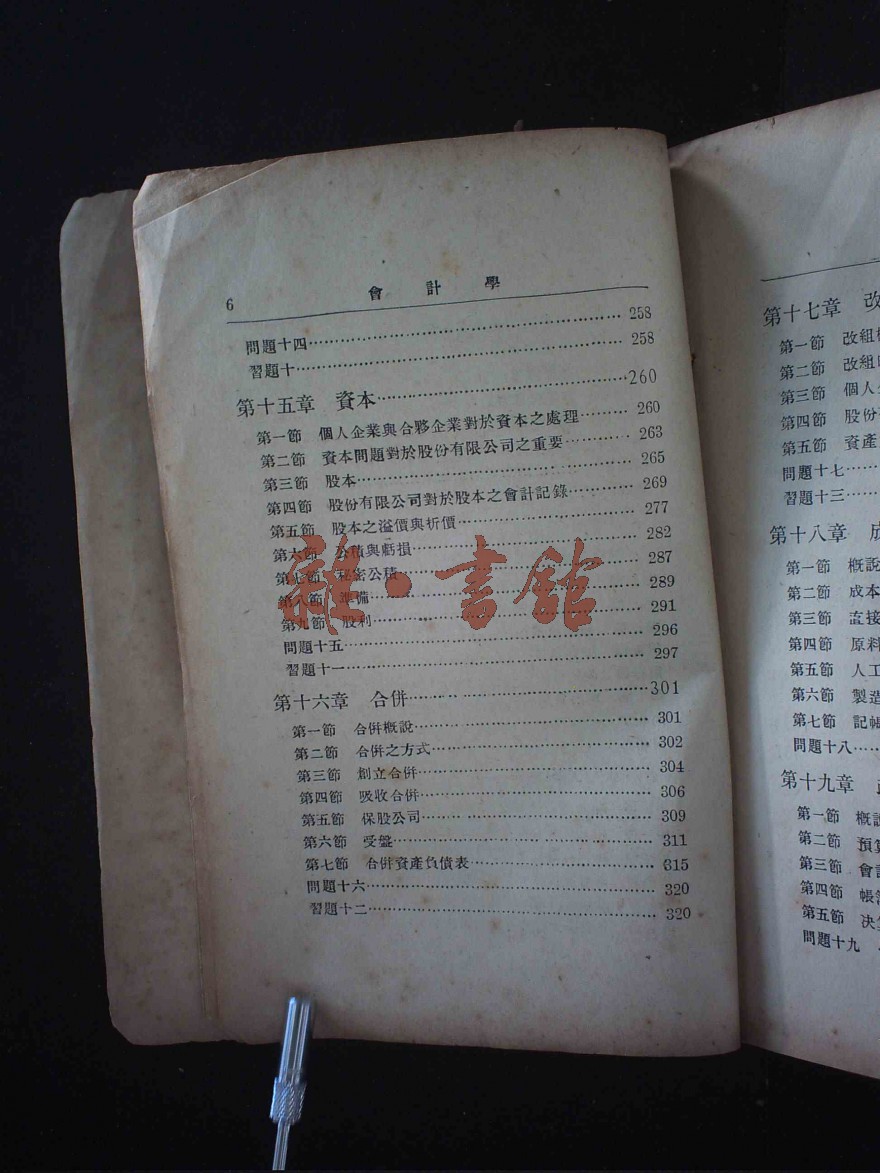 6 會計學
問題十四 258
習題十 258
第十五章 資本 260
第一節 個人企業與合夥企業對於資本之處理 260
第二節 資本問題對於股份有限公司之重要 263
第三節 股本 265
第四節 股份有限公司對於股本之會計記錄 269
第五節 股本之溢價與折價 277
第六節 公積與虧損 282
第七節 秘密公積 287
第八節 準備 289
第九節 股利 291
問題十五 296
習題十一 297
第十六章 合併 301
第一節 合併概說 301
第二節 合併之方式 302
第三節 創立合併 304
第四節 吸收合併 306
第五節 保股公司 309
第六節 受盤 311
第七節 合併資產負債表 315
問題十六 320
習題十二 320
雜·書館
第十七章 改
第一節 改組
第二節 改組
第三節 個人
第四節 股份
第五節 資產
問題十七
習題十三
第十八章 成
第一節 概說
第二節 成本
第三節 直接
第四節 原料
第五節 人工
第六節 製造
第七節 記帳
問題十八
第十九章
第一節 概說
第二節 預算
第三節 會計
第四節 帳
第五節 決算
問題十九